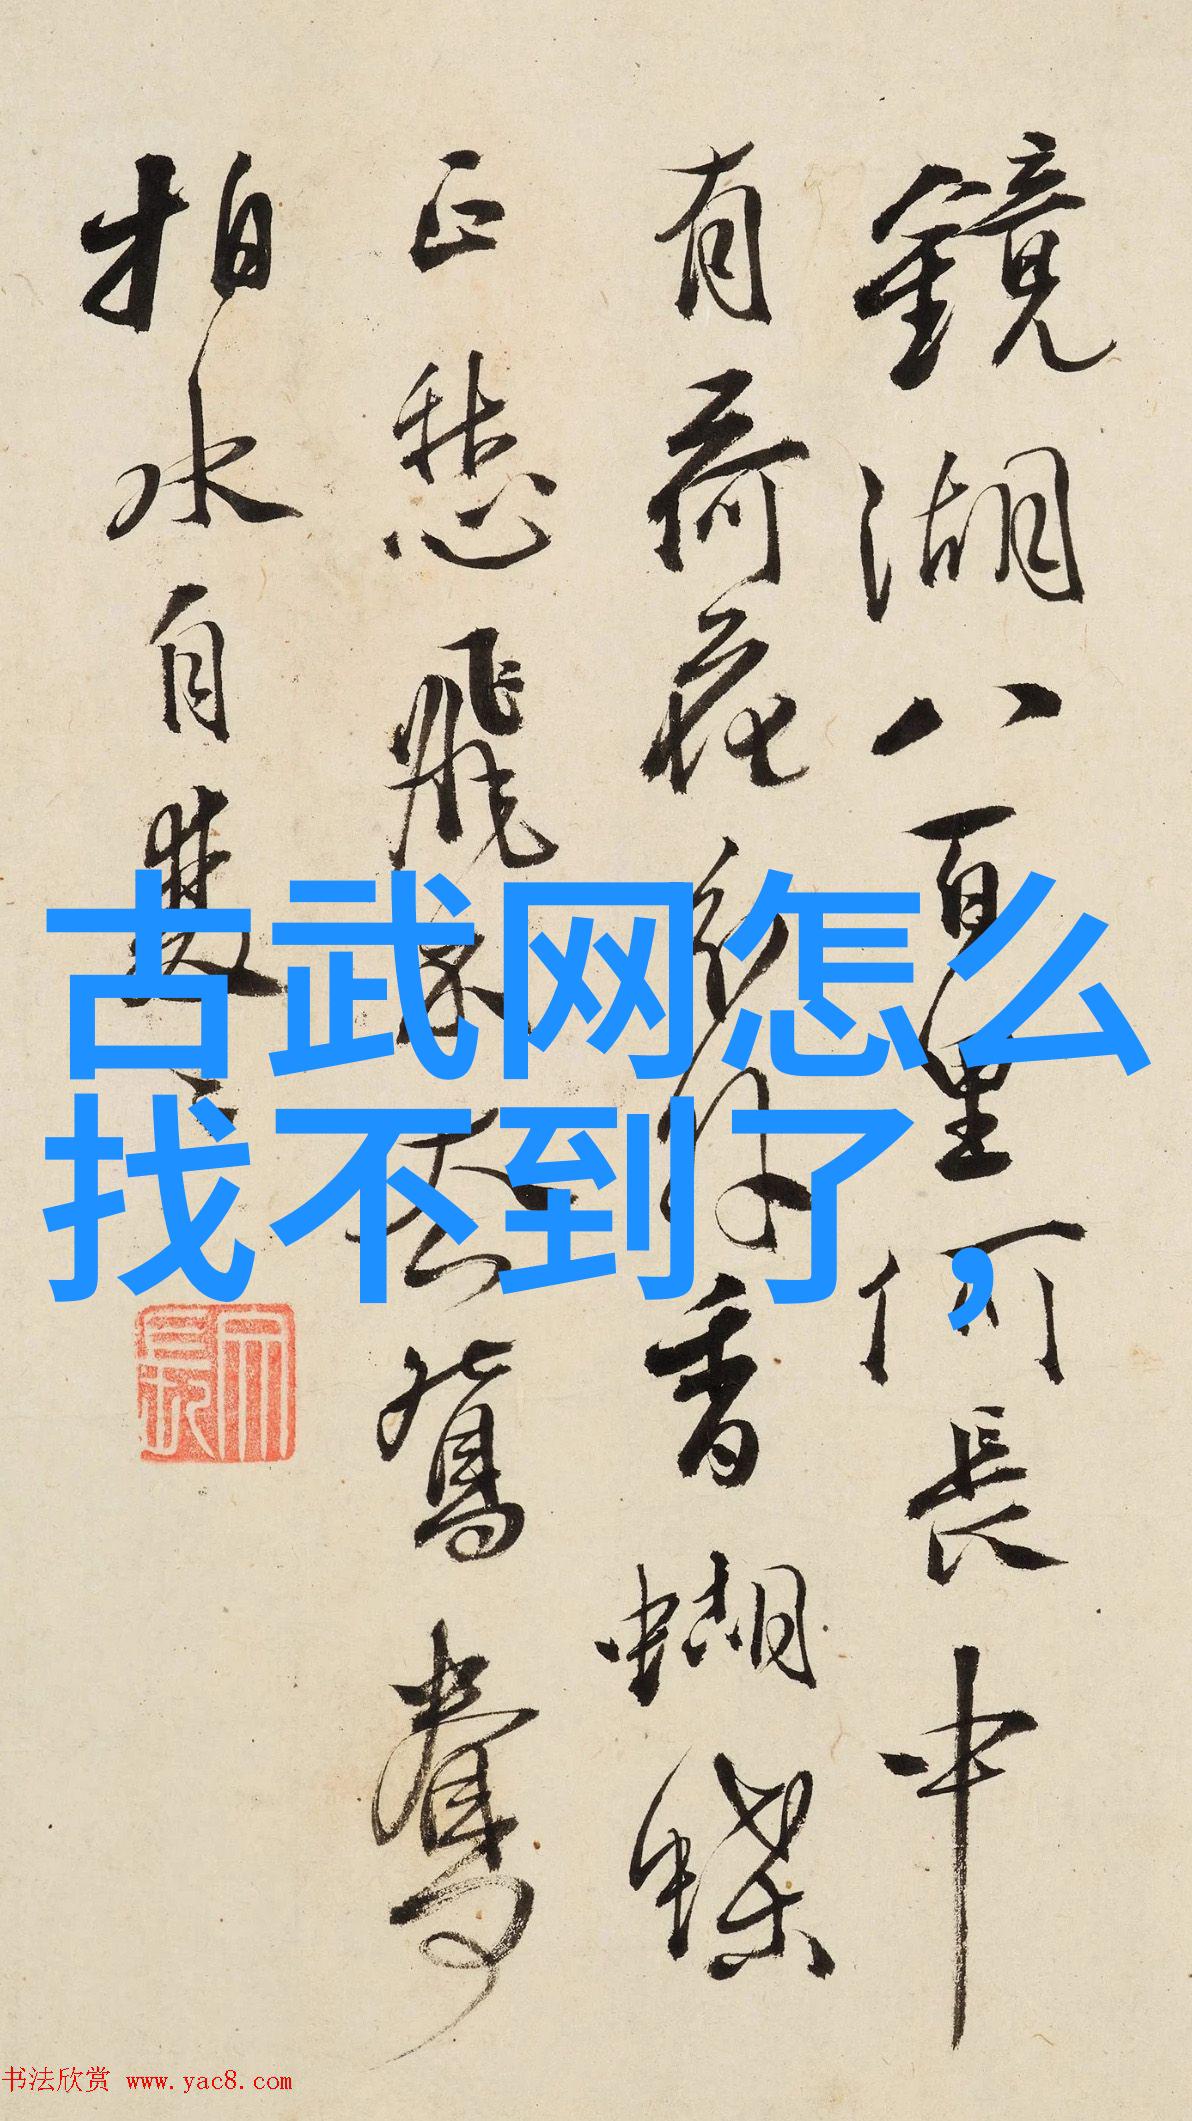 鏡湖八百里何長中
有荷花分外香蝴蝶
正愁飛不鴛鴦
拍水自雙
古武网怎么
找不到了,
书法欣赏 www.yac8.com